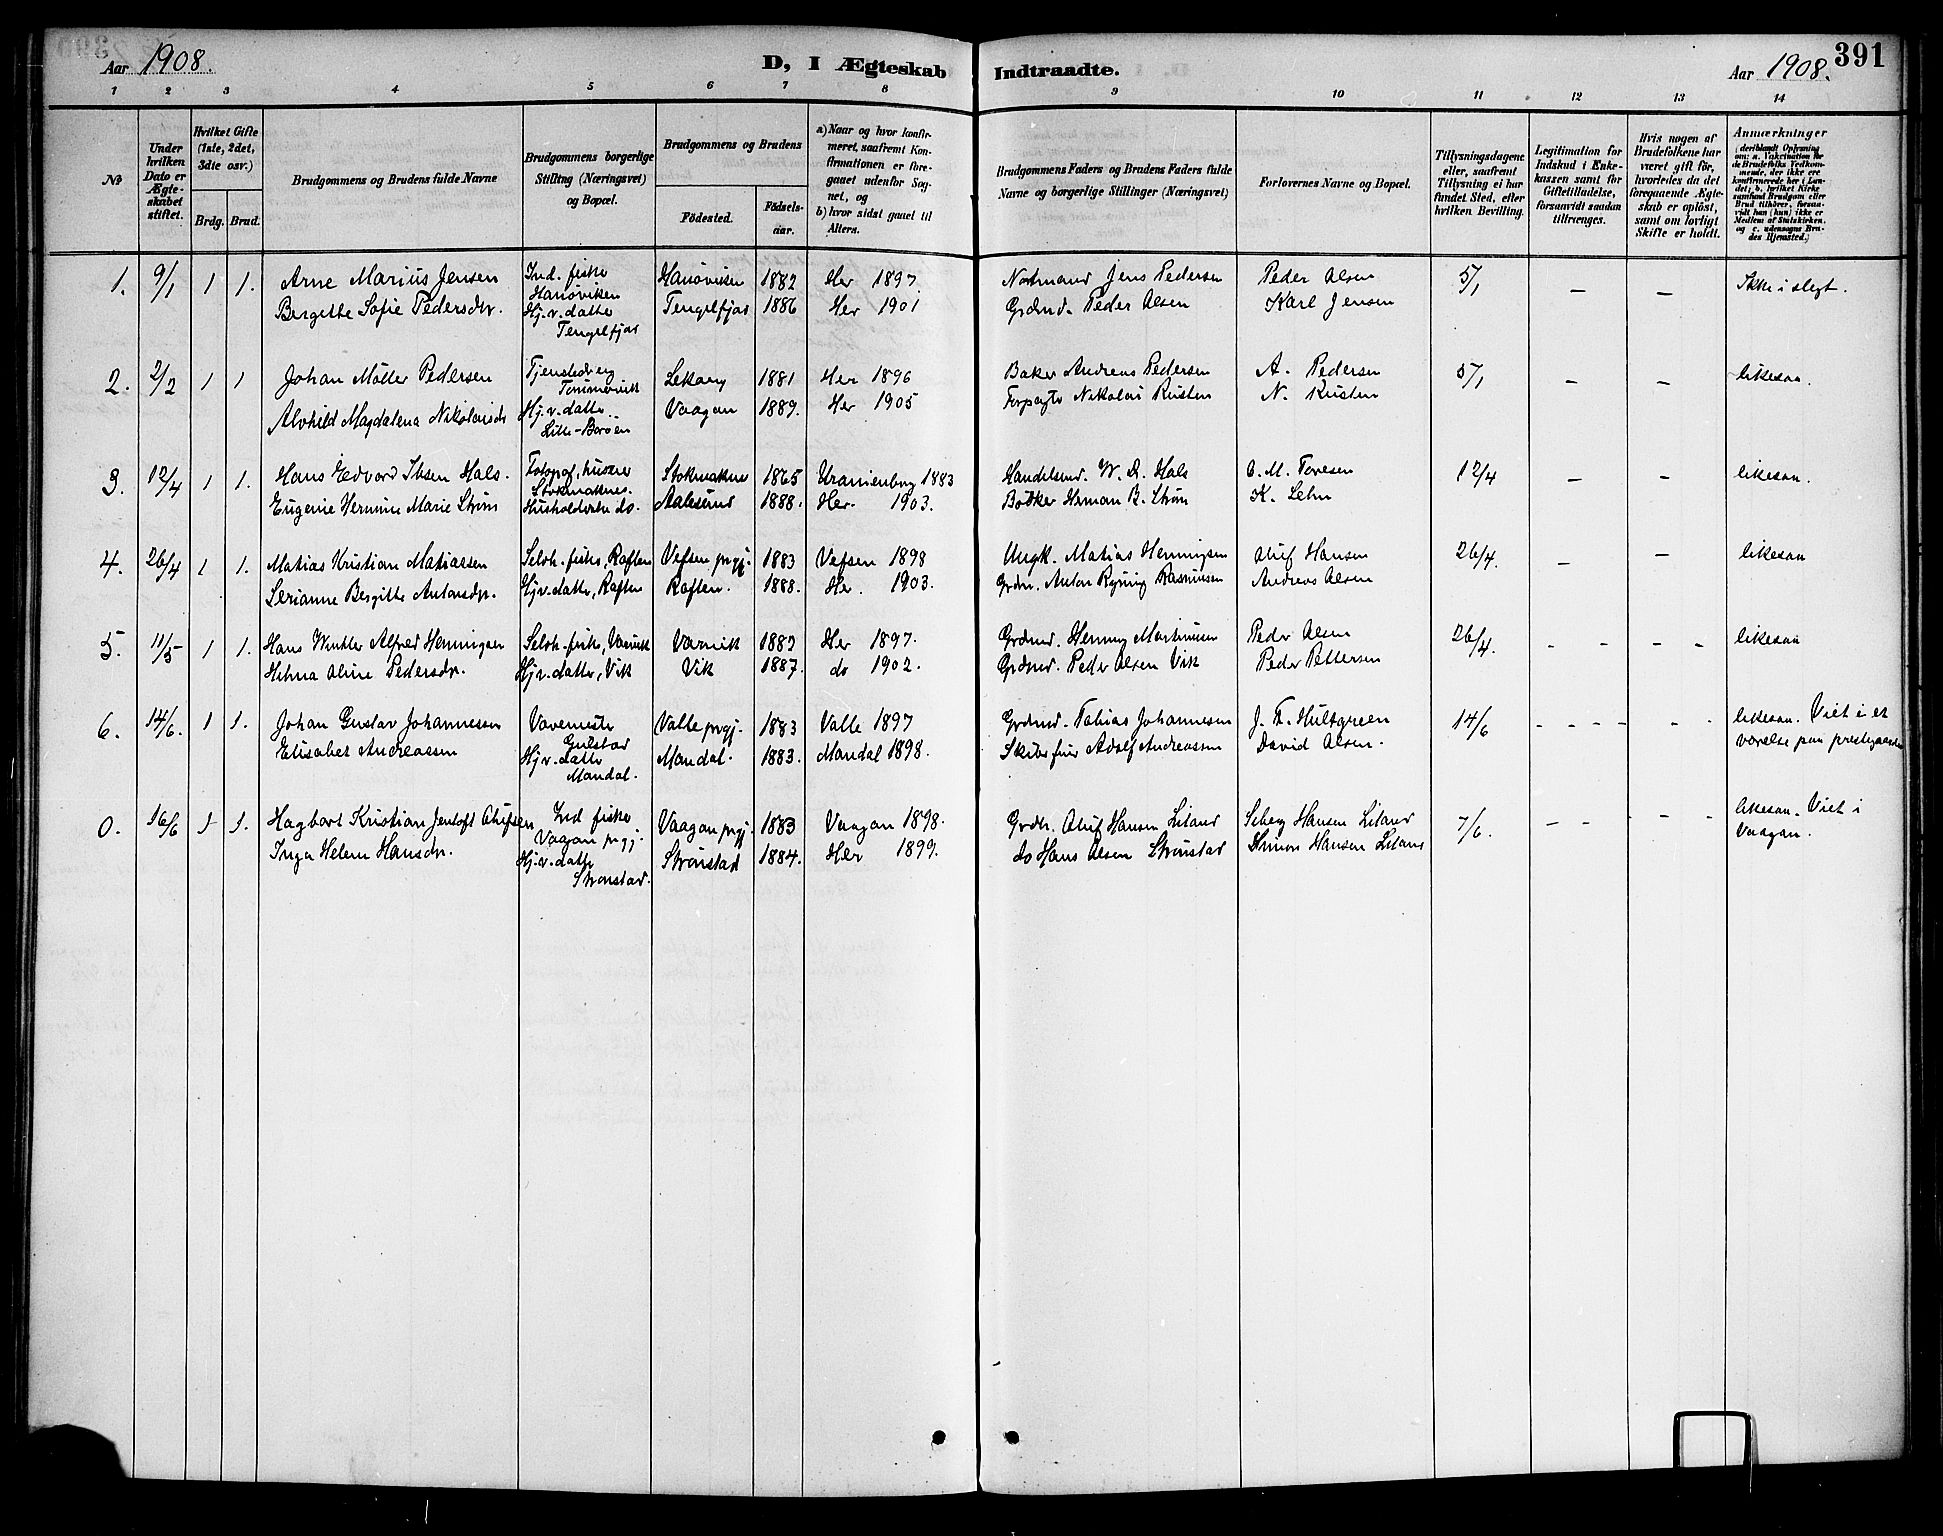 Aar 1908.
D, I Ægteskab Indtraadte.
Aar 1908. 391
1 2 3 4 5 6 7 8 9 10 11 12 13 14
No
Under hvilken Dato er Ægteskabet stiftet.
Hvilket Gifte (1ste, 2det, 3dte osv.)
Brdg. Brud.
Brudgommens og Brudens fulde Navne
Brudgommens borgerlige Stilling (Næringsvei) og Bopæl.
Brudgommens og Brudens
Födested.
Födselsaar.
a) Naar og hvor konfirmeret, saafremt Konfirmationen er foregaaet udenfor Sognet, og
b) hvor sidst gaaet til Alters.
Brudgommens Faders og Brudens Faders fulde Navne og borgerlige Stillinger (Næringsvei)
Forlovernes Navne og Bopæl.
Tillysningsdagene eller, saafremt Tillysning ei har fundet Sted, efter hvilken Bevilling.
Legitimation for Indskud i Enkekassen samt for Giftetilladelse, forsaavidt saadan tiltrænges.
Hvis nogen af Brudefolkene har været gift för, hvorledes da det foregaaende Ægteskab er oplöst, samt om lovligt Skifte er holdt.
Anmærkninger (deriblandt Oplysning om: a. Vakcination for de Brudefolks Vedkommende, der ikke ere konfirmerede her i Landet; b. hvilket Kirkesamfund Brudgom eller Brud tilhörer, forsaavidt han (hun) ikke er Medlem af Statskirken, og c. udensogns Brudes Hjemsted.)
1. 9/1 1 1. Arne Marius Jensen Ind. fisker Hanøviken Hanøviken 1882 Her 1897. Nordmand Jens Pedersen Peder Olsen 5/1 – – Ikke i slegt.
Bergitte Sofie Pedersdr. Hj.v. datter Tengelfjor Tengelfjor 1886 Her 1901 Grdmd. Peder Olsen Karl Jensen
2. 2/2 1 1 Johan Möller Pedersen Lekang 1881 Her 1896 Baker Andreas Pedersen A. Pedersen 5/1 – – likesaa.
Alvhild Magdalena Nikolaisdr Hj.v. datter. Lille-Borøen Vaagan 1889. Her 1905 Forpagter Nikolai Rusten N. Rusten
3. 12/4 1 1. Hans Edvard Ibsen Hals. Fotograf, Stokmarknes. Stokmarknes 1865 Uranienborg 1883 Handelsmd. W. D. Hals 12/4 – – likesaa.
Eugenie Hermine Marie Strøm Husholderske do. Aalesund 1888. Her. 1903. Bødker Herman B. Strøm
4. 26/4 1 1. Matias Kristian Matiassen Selvh. fisker, Raften Vefsen prgj. 1883 Vefsen 1898 Ungk. Matias Henningsen Oluf Hansen 26/4 – – likesaa
Serianne Bergitte Antonsdr. Hj.v. datter, Raften Raften. 1888. Her. 1903. Grdm. Anton Ryning Rasmussen Andreas Olsen
5. 11/5 1 1. Hans Winther Alfred Henningsen Selvh. fisker, Varvik Varvik 1882 Her 1897. Grdmd. Henning Martinusen Peder Olsen 26/4. - - - - likesaa
Helma Oline Pedersdr. Hj.v. datter, Vik Vik 1887. do 1902. Grdmd. Peder Olsen Vik Peder Pettersen
6. 14/6. 1 1. Johan Gustav Johannesen Vævemester Gulstad Valle prgj. 1883 Valle 1897 Grdmd. Tobias Johannesen J. F. Hultgreen 14/6 - - - - - - likesaa. Viet i et
Elisabet Andreassen Hj.v. datter Mandal. Mandal. 1883. Mandal 1898. Skibsfører Adolf Andreassen David Olsen. værelse paa prestegaarden
0. 16/6 1 1. Hagbart Kristian Jentoft Olufsen Ind fisker Vaagan prgj. Vaagan prgj. 1883 Vaagan 1898. Grdm. Oluf Hansen Liland Hansen Liland 7/6. - - - - likesaa. Viet i
Inga Helene Hansdr. Hj.v. datter Strønstad. Strønstad 1884. Her 1899. do Hans Olsen Strønstad Simon Hansen Liland Vaagan.